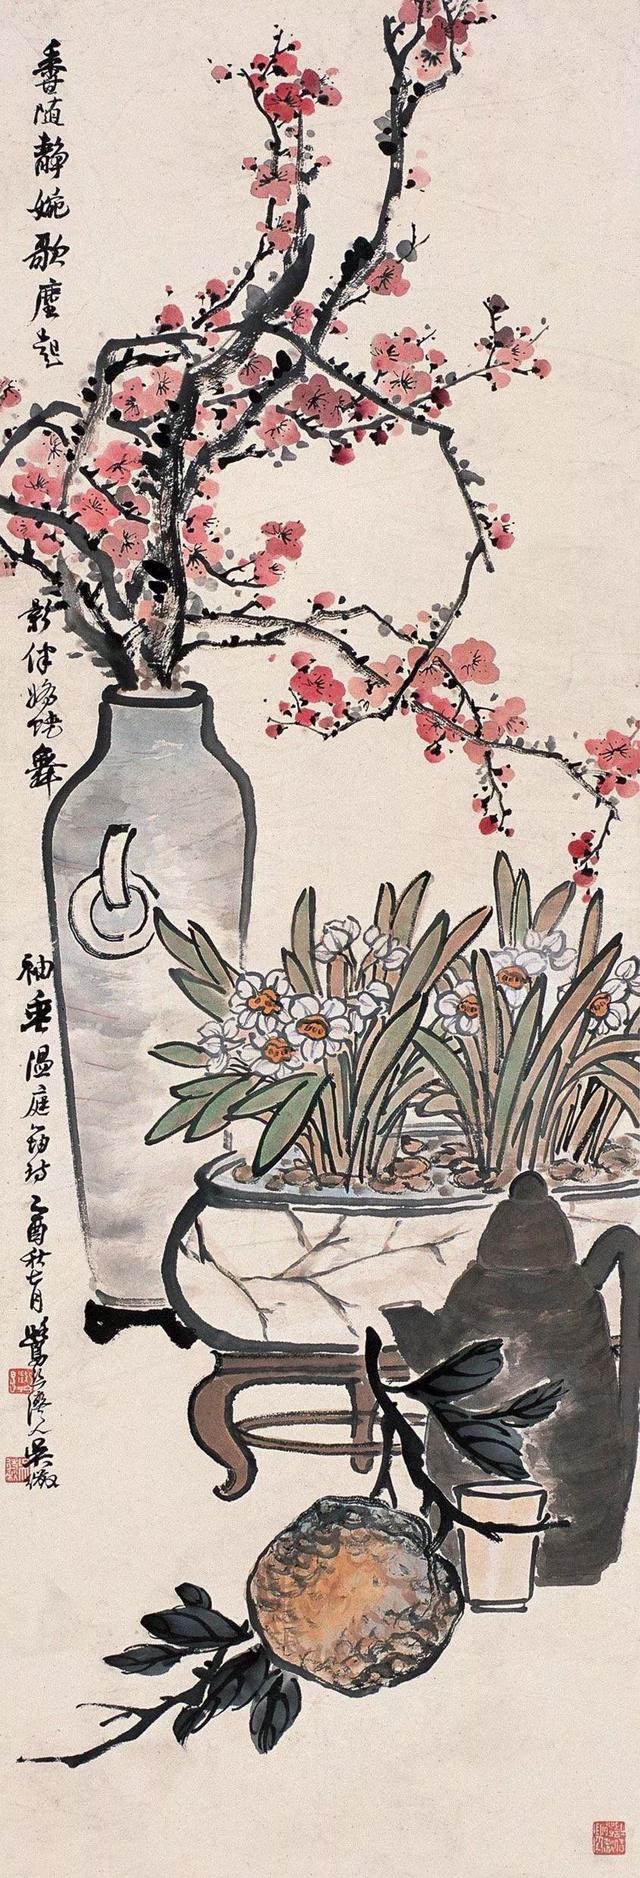 香隨靜婉歌塵起
影伴嬌饒舞
袖垂溫庭筠詩乙酉秋七月鷺絲灣人吳徵